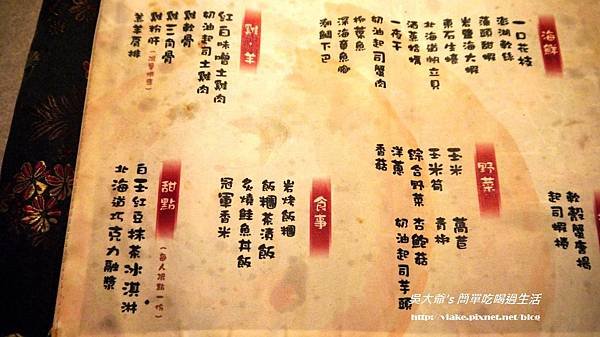 海鮮
一口花枝
澎湖軟絲
蒲頭甜蝦
岩鹽海大蝦
東石生蠔
北海道帆立貝
酒蒸蛤蠣
一夜干
奶油起司蟹肉
柳葉魚
深海章魚腳
潮鯛下巴
雞.羊
紅白味噌土雞肉
奶油起司土雞肉
雞軟骨
雞三角骨
雞粉肝
羊羊肩排
軟殼蟹唐揚
起司蝦捲
野菜
玉米
玉米筍
綜合野菜
洋蔥
香菇
萵苣
青椒
杏鮑菇
奶油起司芋頭
食事
岩烤飯糰
飯糰茶漬飯
炙燒鮭魚丼飯
冠軍香米
甜點
(每人限點一份)
白玉紅豆抹茶冰淇淋
北海道巧克力融漿
吳大爺's 簡單吃喝過生活
http://vlake.pixnet.net/blog